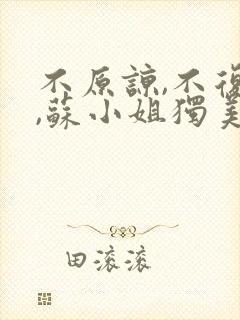 不原諒,不復
,蘇小姐獨美
田滚滚